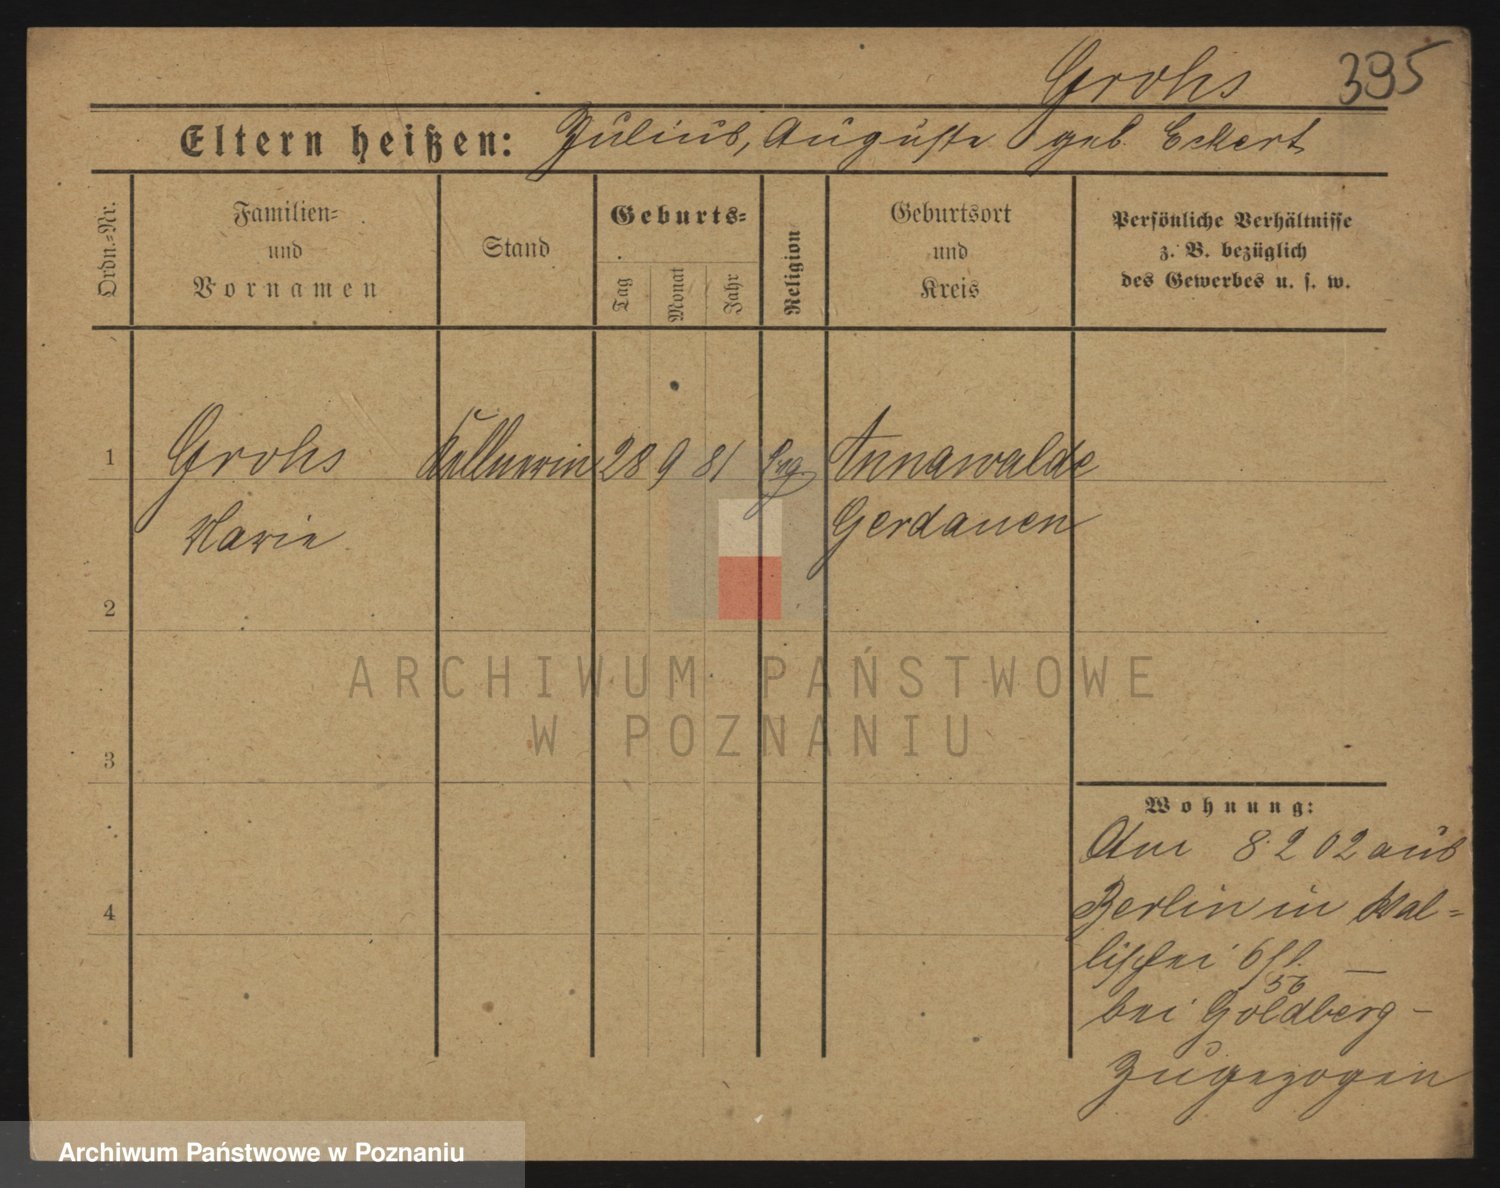 Grohs 395
Eltern heißen: Julius, Auguste geb. Eckert
Ordn.=Nr.
Familien=
und
Vornamen
Stand
Geburts=
Tag
Monat
Jahr
Religion
Geburtsort
und
Kreis
Persönliche Verhältnisse
z. B. bezüglich
des Gewerbes u. s. w.
1 Grohs Kellnerin 28 9 81 Evg Annawalde
Marie Gerdauen
2
ARCHIWUM PAŃSTWOWE
W POZNANIU
3
Wohnung:
Am 8 2 02 aus
Berlin in Wal=
lischei
bei Goldberg –
zugezogen
4
Archiwum Państwowe w Poznaniu